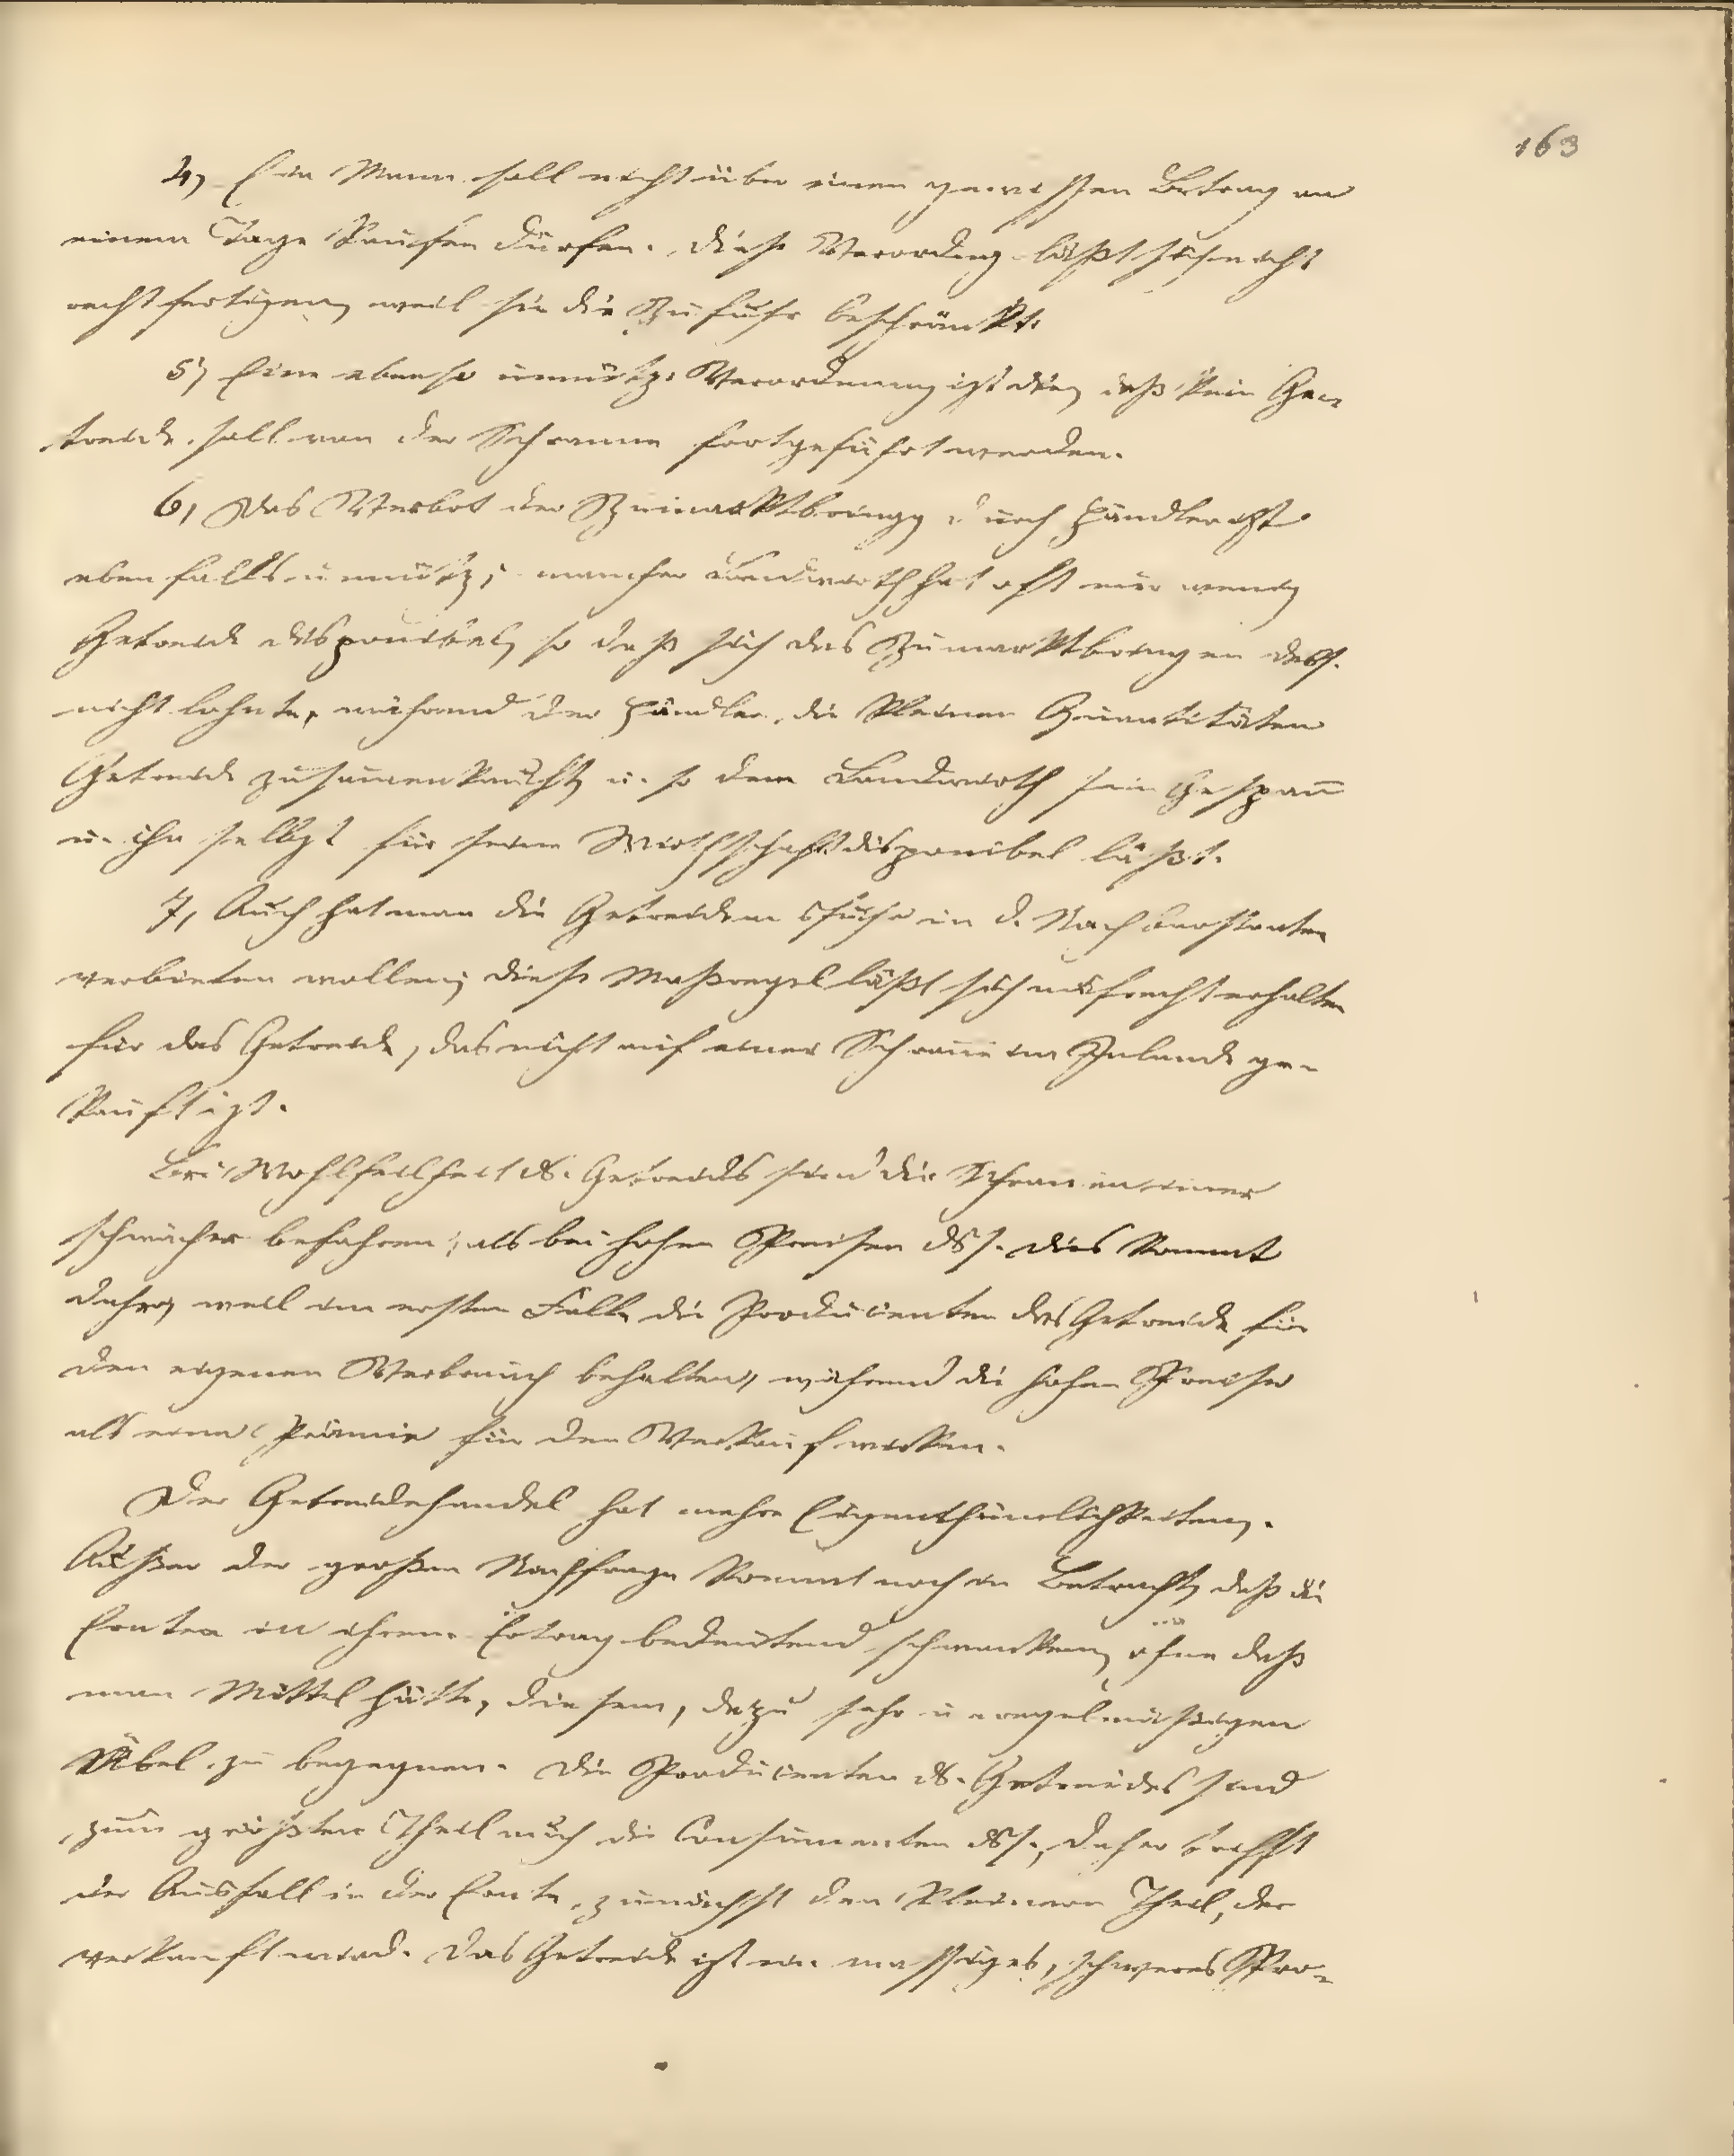 163
4, Ein Mann soll nicht über einen gewissen Betrag an
einem Tage kaufen dürfen. Diese Verordng läßt sich nicht
rechtfertigen, weil sie die Zufuhr beschränkt.
5, Eine ebenso unnütze Verordnung ist die, daß kein Ge-
treide soll von der Schranne fortgeführt werden.
6, Das Verbot der Zumarktbringg durch Händler ist
ebenfalls unnütz; mancher Landwirth hat oft nur wenig
Getreide disponibel, so daß sich das Zumarktbringen dess.
nicht lohnte, während der Händler die kleinen Quantitäten
Getreide zusammenkauft, u. so dem Landwirth sein Gespann
u. ihn selbst für seine Wirthschaft disponibel läßt.
7, Auch hat man die Getreideausfuhr in d. Nachbarstaaten
verbieten wollen; diese Maßregel läßt sich aufrecht erhalten
für das Getreide, das nicht auf einer Schranne im Inlande ge-
kauft ist.
Bei Wohlfeilheit ds. Getreides sind die Schrannen immer
schwächer befahren, als bei hohen Preisen dss. Dies kommt
daher, weil im ersten Falle die Producenten das Getreide für
den eigenen Verbrauch behalten, während die hohen Preise
als eine Prämie für den Verkauf wirken.
Der Getreidehandel hat mehre Eigenthümlichkeiten.
Außer der großen Nachfrage kommt noch in Betracht, daß die
Ernten in ihrem Ertrag bedeutend schwanken, ohne daß
man Mittel hätte, diesem, dazu sehr unregelmäßigen
Übel zu begegnen. Die Producenten ds. Getreides sind
zum größten Theil auch die Consumenten dss., daher trifft
der Ausfall in der Ernte zunächst den kleinern Theil, der
verkauft wird. Das Getreide ist ein massiges, schweres Pro-